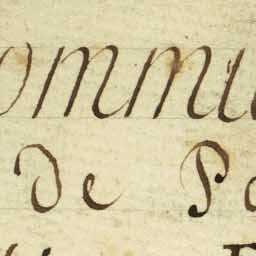 ommu
de Pa